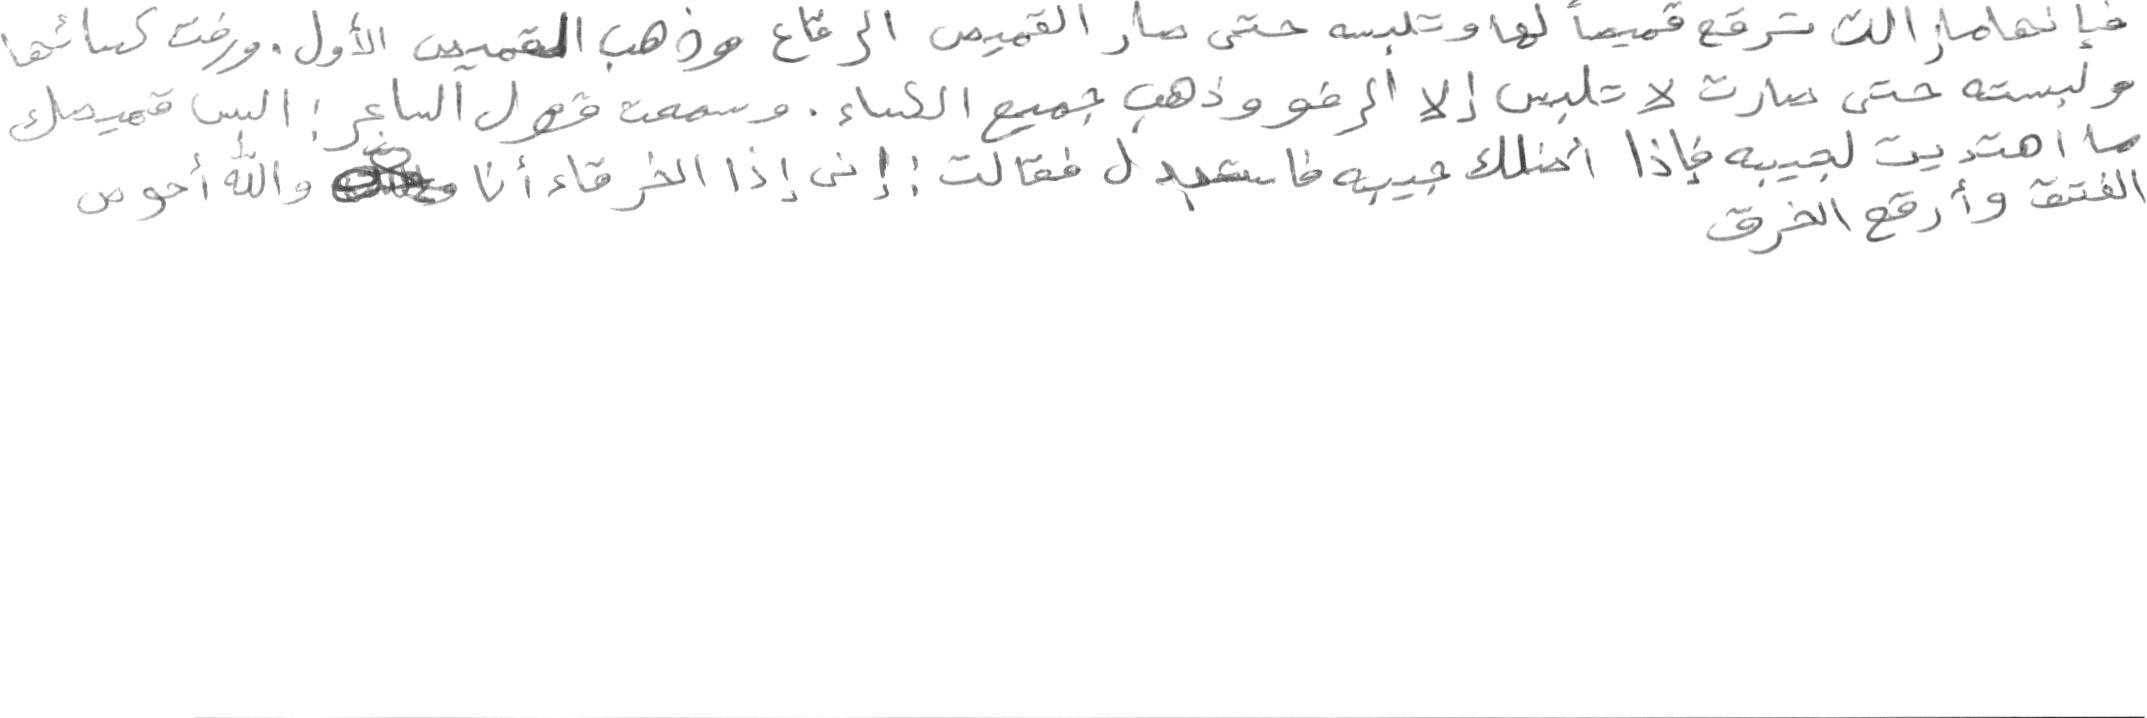 فإنها ما زالت ترقع قميصاً لها وتلبسه حتى صار القميص الرقاع وذهب القميص الأول. ورفت كسائها
ولبسته حتى صارت لا تلبس إلا الرفو وذهب جميع الكساء. وسمعت قول الشاعر: البس قميصك
ما اهتديت لجيبه فإذا أضلك جيبه فاستبدل فقالت: إنى إذا الخرقاء أنا والله أحوص
الفتق وأرقع الخرق